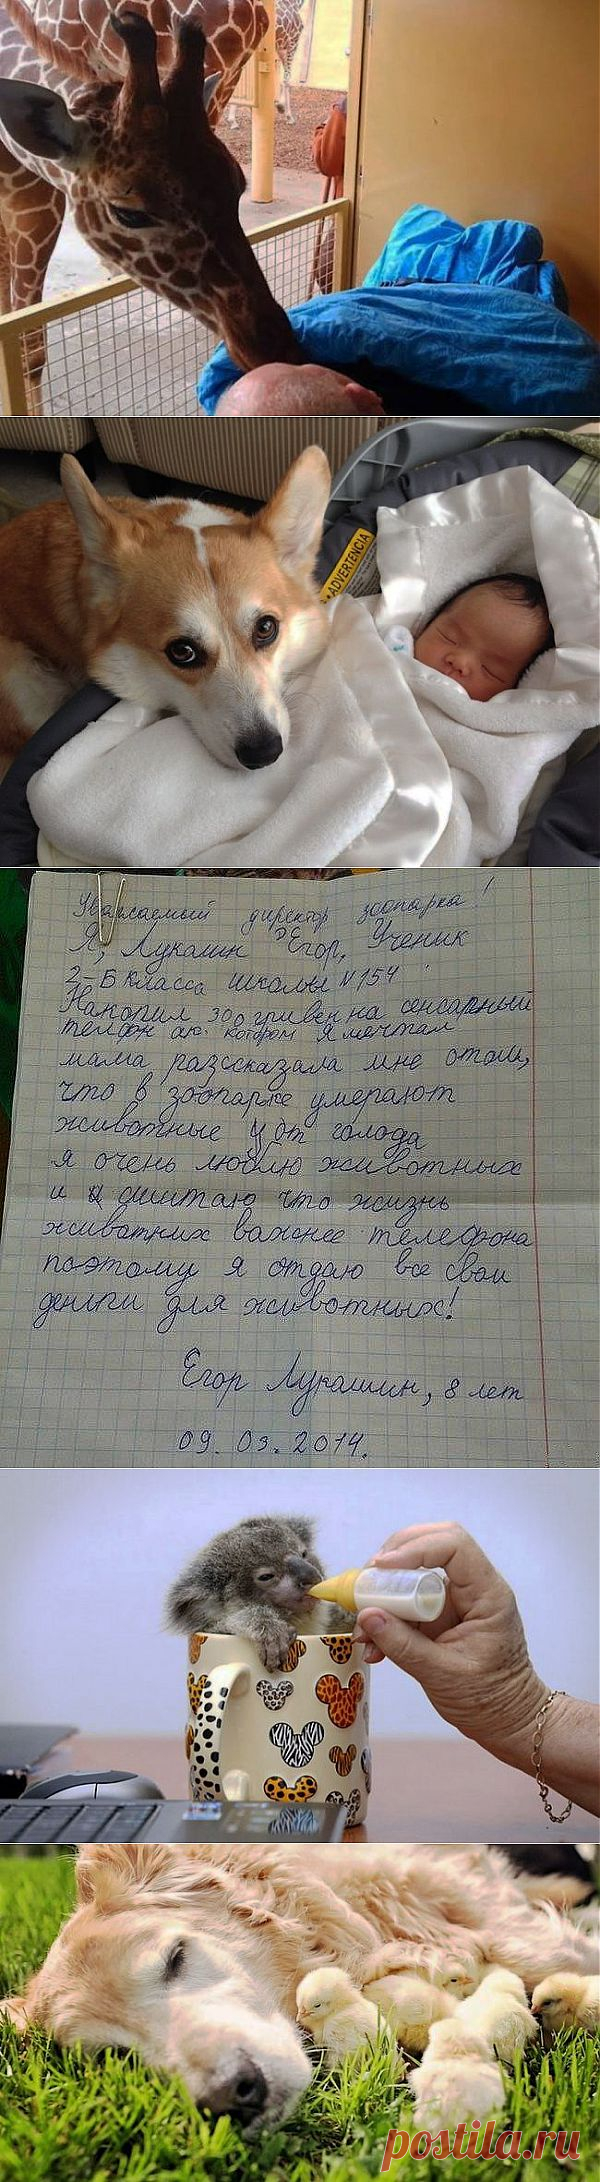 ADVERTENCIA
Уважаемый директор зоопарка!
Я, Лукашин Егор, Ученик
2-Б класса школы №154
Накопил 300 гривен на сенсарный
телфон ок. котором я мечтал
мама разссказала мне о том,
что в зоопарке умерают
животные от голода
я очень люблю животных
и считаю что жизнь
животних важнее телефона
поэтому я отдаю все свои
деньги для животных!
Егор Лукашин, 8 лет
09.03.2014.
postila.ru